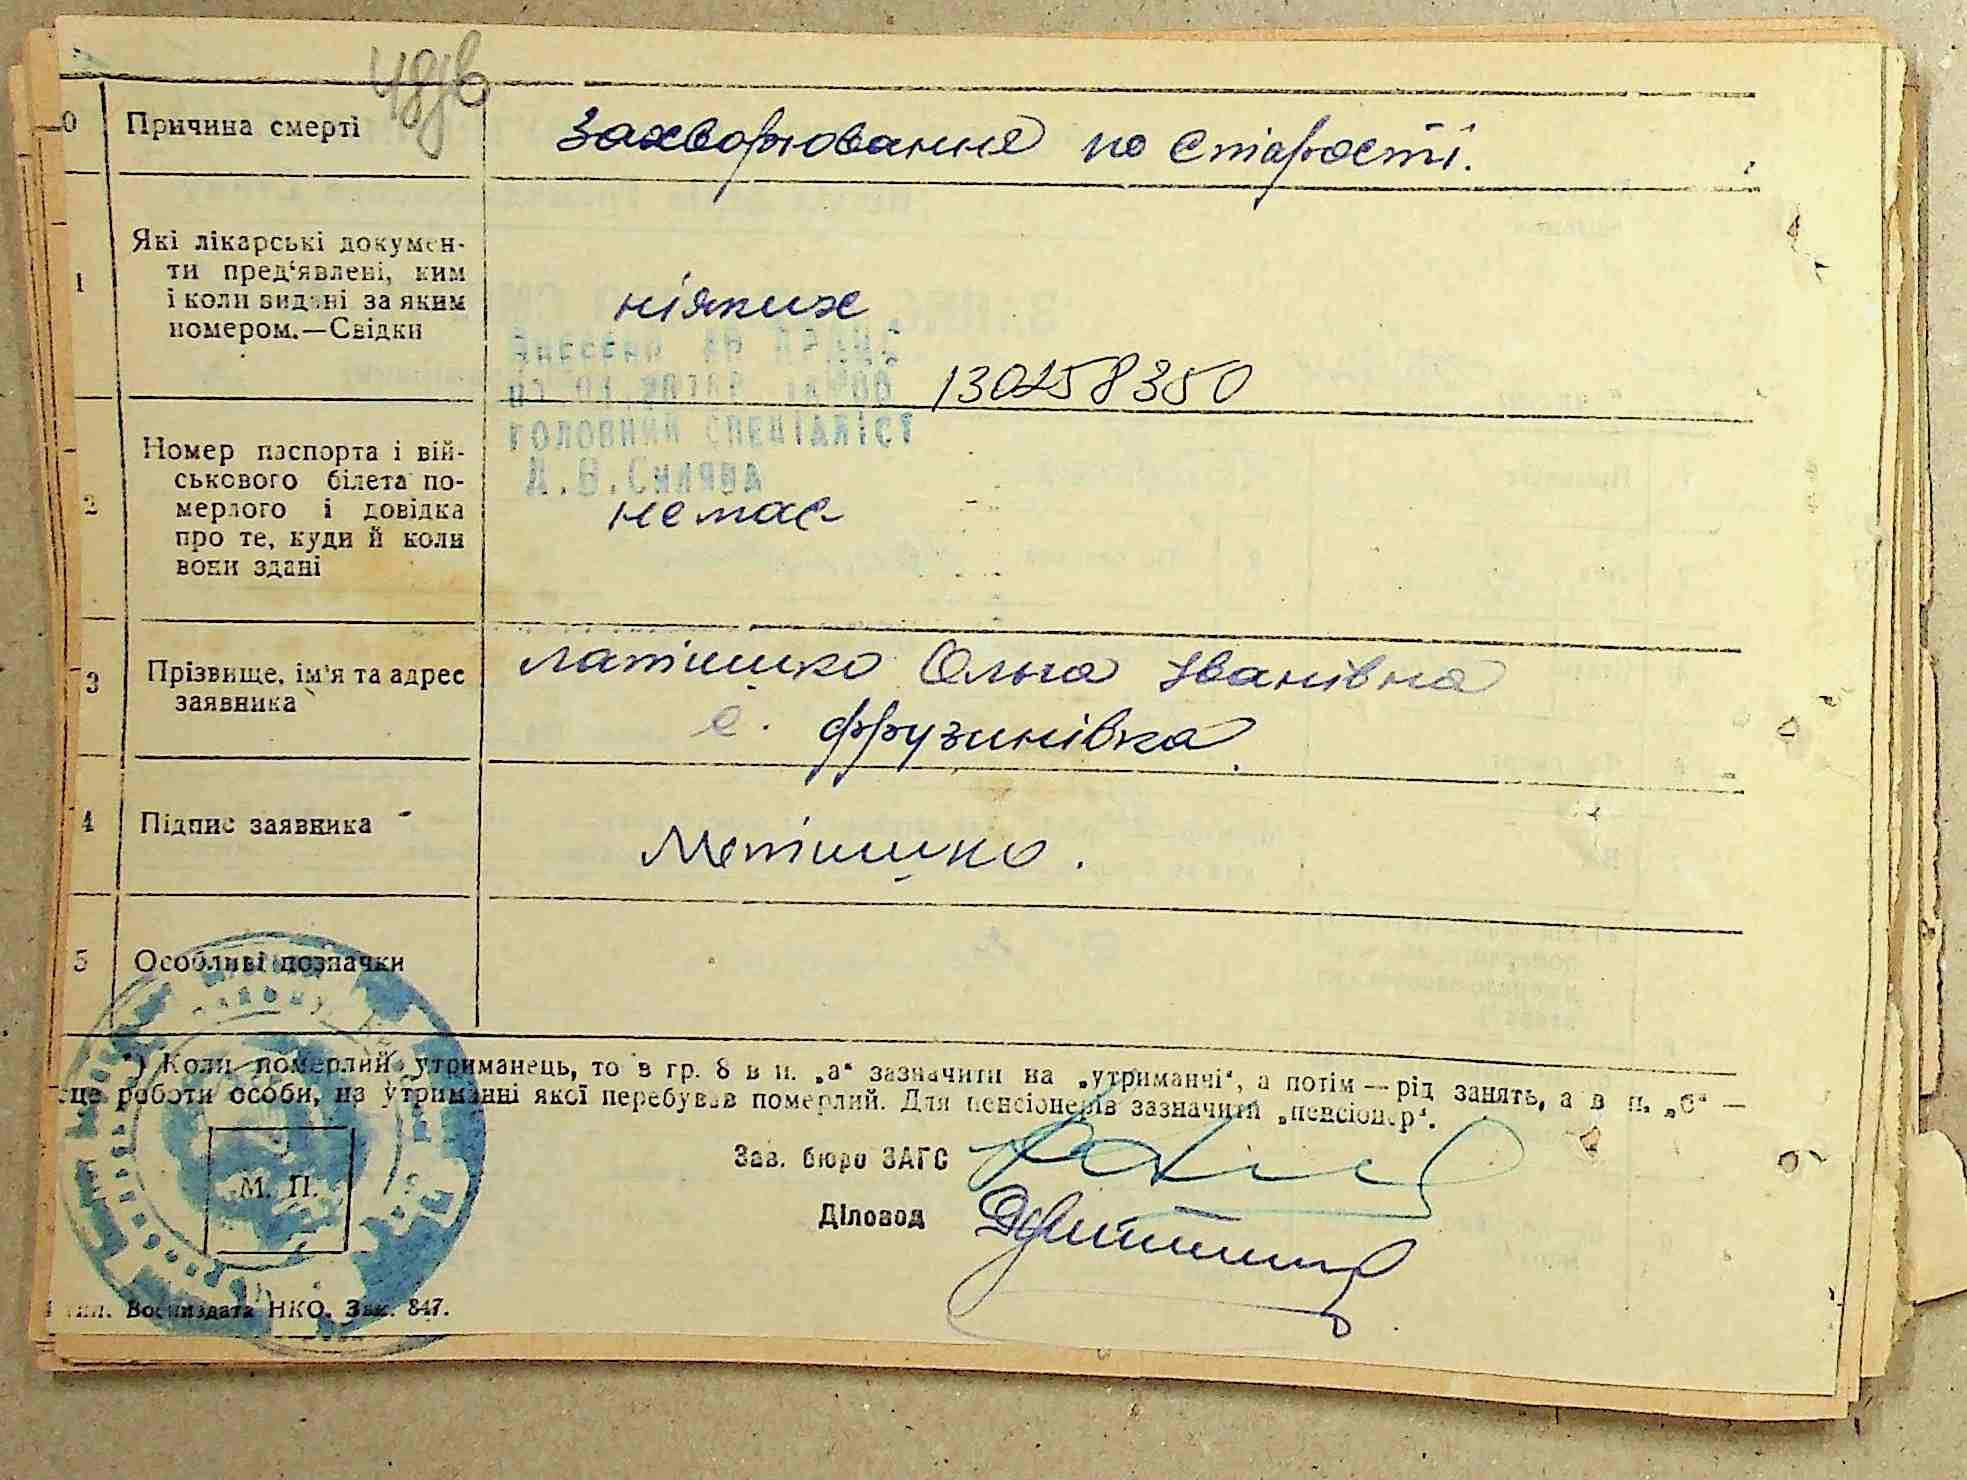 0 Причина смерті
Захворювання по старості.
1 Які лікарські докумен-
ти пред'явлені, ким
і коли видані за яким
номером.—Свідки
ніяких
Внесено до ДРАЦС
130258350
головний спеціаліст
2 Номер паспорта і вій-
ськового білета по-
мерлого і довідка
про те, куди й коли
вони здані
немає
3 Прізвище, ім'я та адрес
заявника
Латішко Ольга Іванівна
с. Фрузинівка
4 Підпис заявника
5 Особливі позначки
*) Коли померлий утриманець, то в гр. 8 в п. „а“ зазначити на „утриманчі“, а потім — рід занять, а в п. „б“ —
сце роботи особи, на утриманні якої перебував померлий. Для пенсіонерів зазначити „пенсіонер“.
Зав. бюро ЗАГС
Діловод
М. П.
тип. Воениздата НКО. Зак. 847.